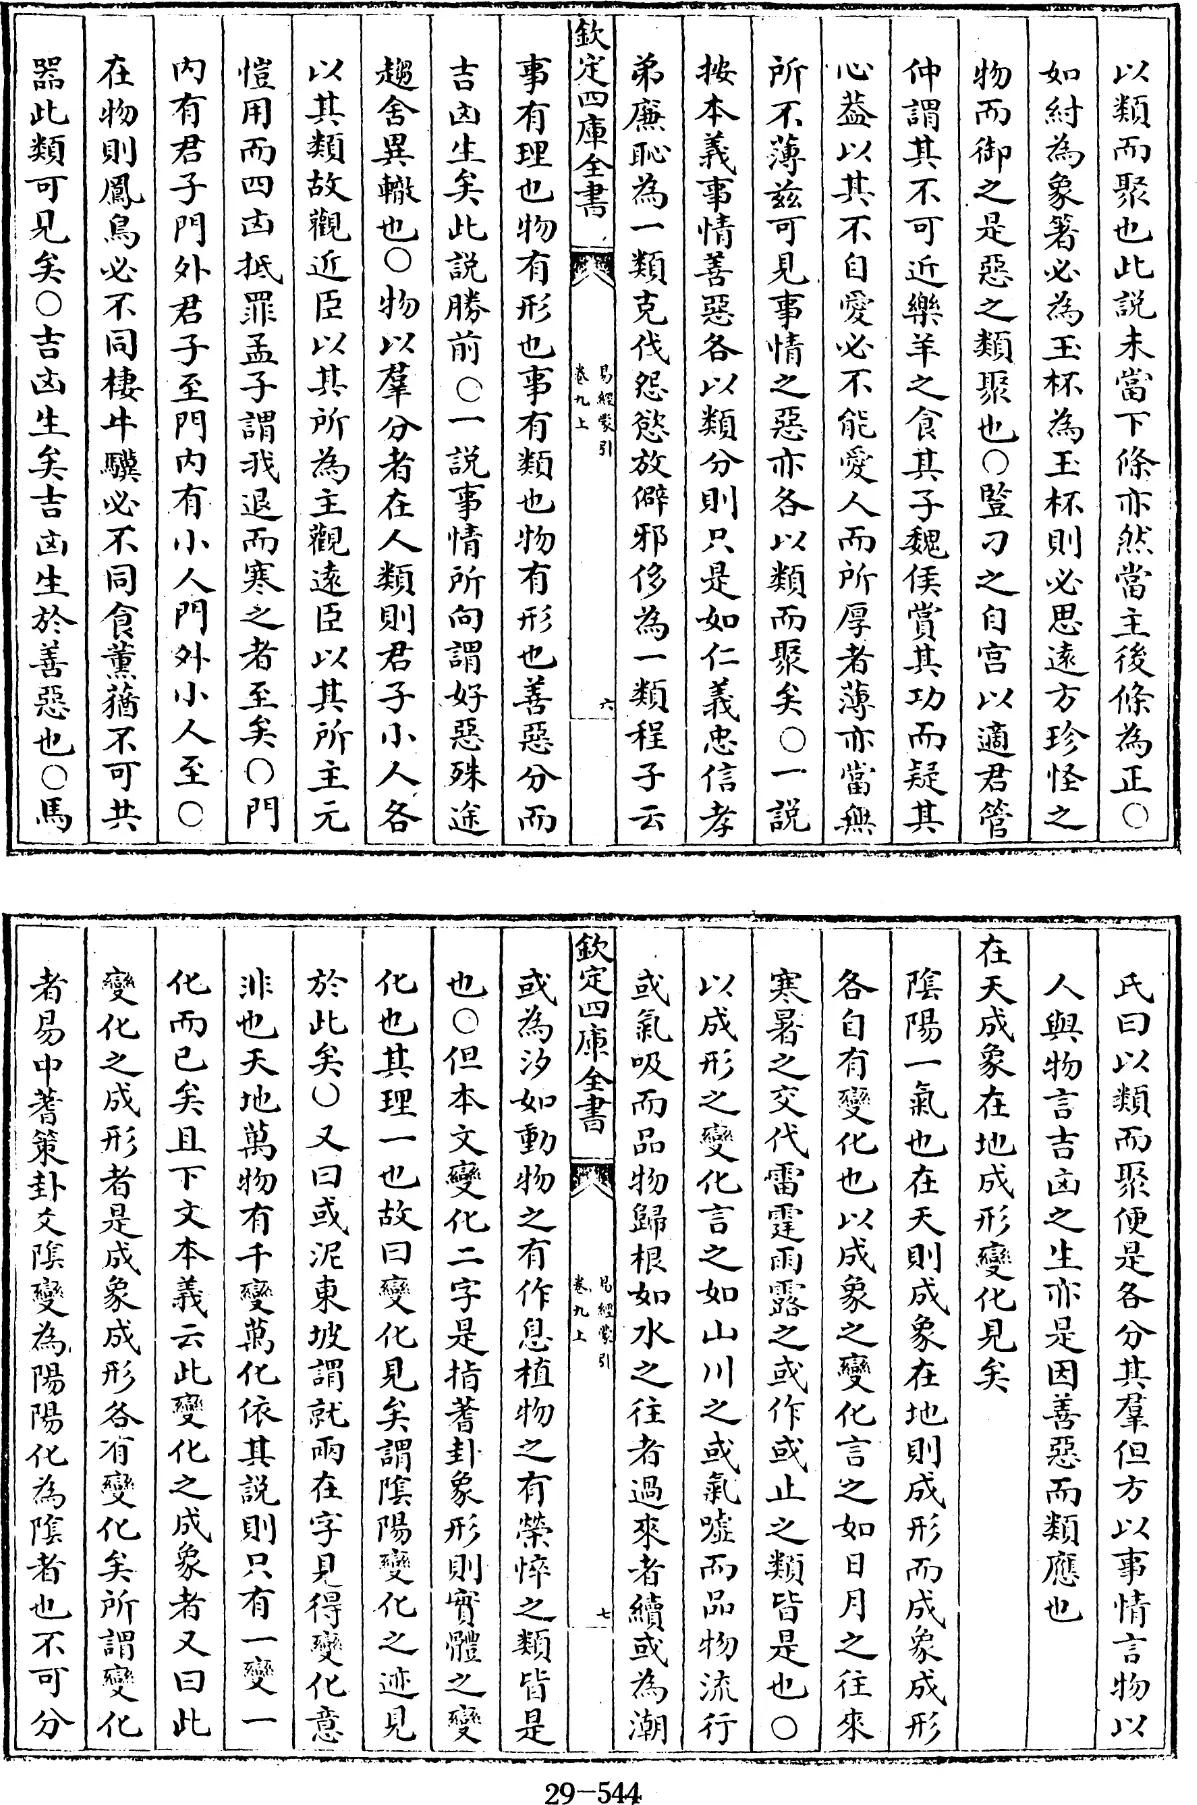 以類而聚也此説未當下條亦然當主後條為正○
如紂為象箸必為玉杯為玉杯則必思遠方珍怪之
物而御之是惡之類聚也○豎刁之自宫以適君管
仲謂其不可近樂羊之食其子魏侯賞其功而疑其
心葢以其不自愛必不能愛人而所厚者薄亦當無
所不薄兹可見事情之惡亦各以類而聚矣○一説
按本義事情善惡各以類分則只是如仁義忠信孝
弟廉恥為一類克伐怨慾放僻邪侈為一類程子云
欽定四庫全書
易經蒙引
卷九上
六
事有理也物有形也事有類也物有形也善惡分而
吉凶生矣此説勝前○一説事情所向謂好惡殊途
趨舍異轍也○物以羣分者在人類則君子小人各
以其類故觀近臣以其所為主觀遠臣以其所主元
愷用而四凶抵罪孟子謂我退而寒之者至矣○門
内有君子門外君子至門内有小人門外小人至○
在物則鳳鳥必不同棲牛驥必不同食薰蕕不可共
器此類可見矣○吉凶生矣吉凶生於善惡也○馬
氏曰以類而聚便是各分其羣但方以事情言物以
人與物言吉凶之生亦是因善惡而類應也
在天成象在地成形變化見矣
隂陽一氣也在天則成象在地則成形而成象成形
各自有變化也以成象之變化言之如日月之往來
寒暑之交代雷霆雨露之或作或止之類皆是也○
以成形之變化言之如山川之或氣噓而品物流行
或氣吸而品物歸根如水之往者過來者續或為潮
欽定四庫全書
易經蒙引
卷九上
七
或為汐如動物之有作息植物之有榮悴之類皆是
也○但本文變化二字是指蓍卦象形則實體之變
化也其理一也故曰變化見矣謂隂陽變化之迹見
於此矣○又曰或泥東坡謂就兩在字見得變化意
非也天地萬物有千變萬化依其説則只有一變一
化而已矣且下文本義云此變化之成象者又曰此
變化之成形者是成象成形各有變化矣所謂變化
者易中蓍策卦爻隂變為陽陽化為隂者也不可分
29-544